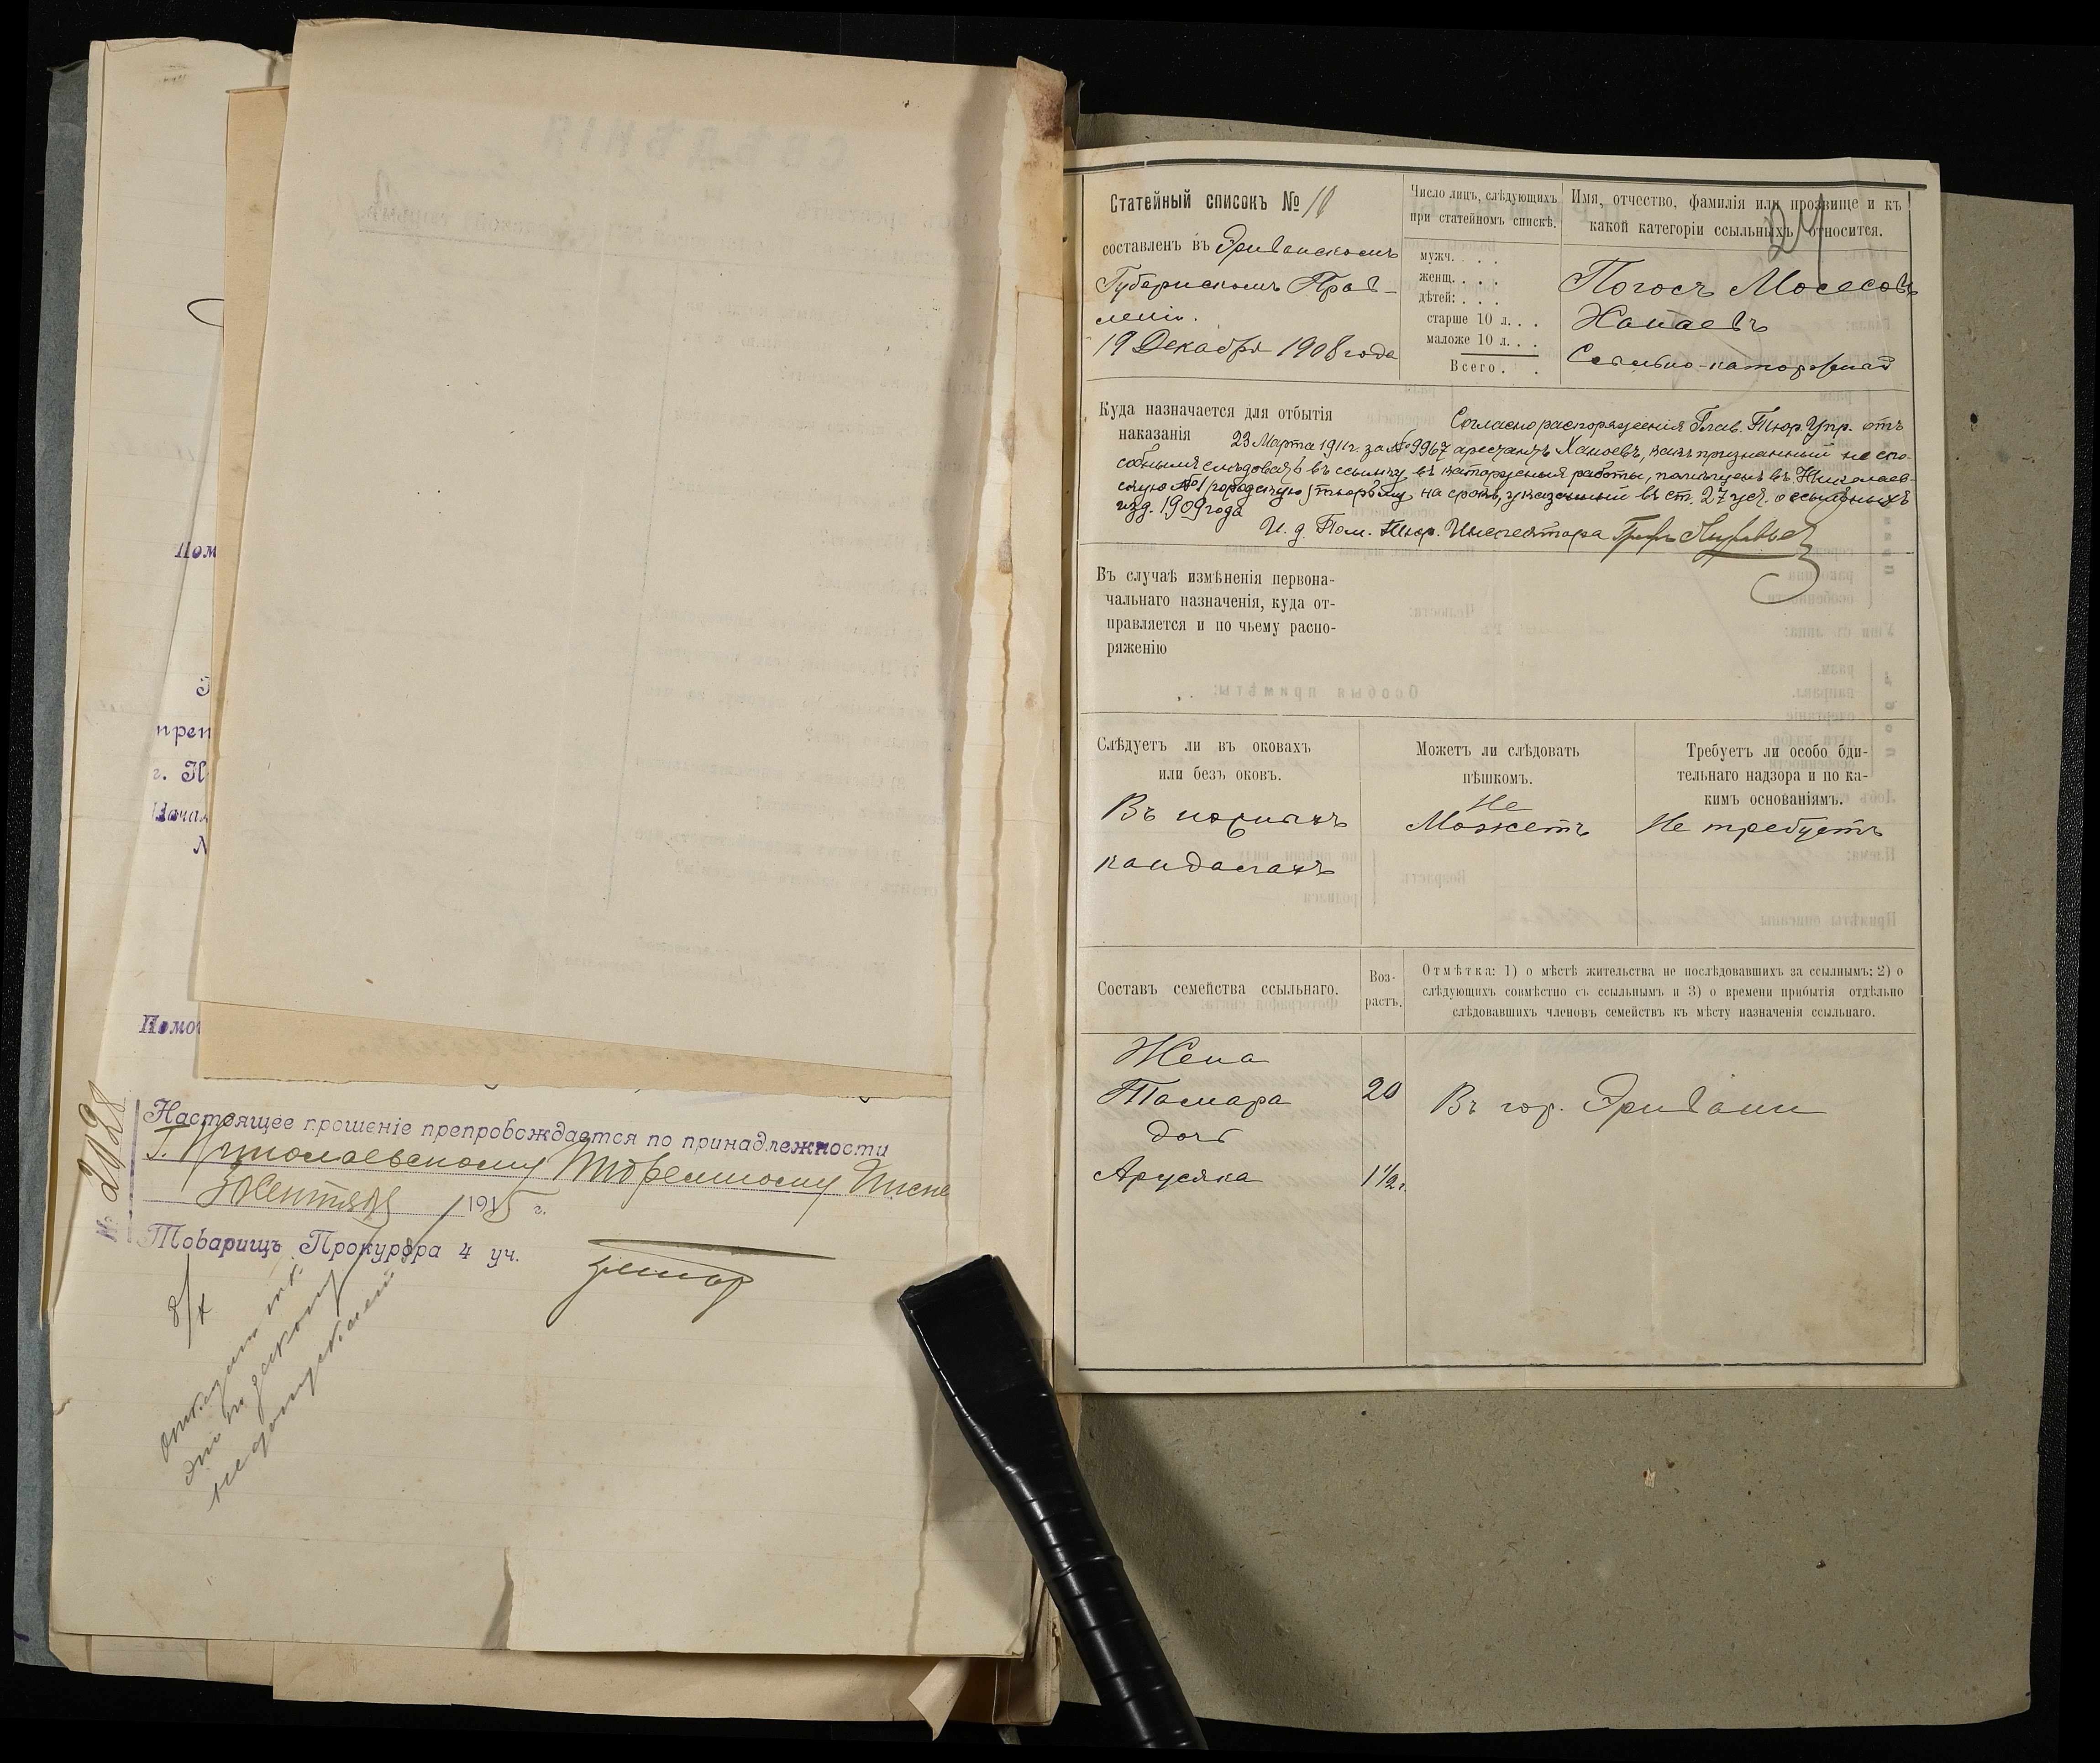 Пом
преп
г. Н
Начал
Помо
№ 2928
Настоящее прошеніе препровождается по принадлежности
Г. Николаевскому Тюремному Инспе
Сентября 1915 г.
Товарищъ Прокурора 4 уч.
8/X
отказать т.к.
по закону
не допускаетъ
Статейный списокъ № 18
составленъ въ Эриванскомъ
Губернскомъ Прав-
леніи.
19 Декабря 1908 года
Число лицъ, слѣдующихъ
при статейномъ спискѣ.
мужч. . . .
женщ. . . .
дѣтей: . . .
старше 10 л. . .
маложе 10 л. . .
Всего . .
Имя, отчество, фамилія или прозвище и къ
какой категоріи ссыльныхъ относится.
24
Погосъ Мосесовъ
Ханаевъ
Ссыльно-каторжный
Куда назначается для отбытія
наказанія
Согласно распоряженія Глав. Тюр. Упр. отъ
23 Марта 1911 г. за № 9967 арестантъ Ханоевъ, какъ признанный неспо-
собнымъ слѣдовать въ ссылку въ каторжныя работы, помѣщенъ въ Николаев-
скую № 1 (городскую) тюрьму на срокъ, указанный въ ст. 27 уст. о ссыльныхъ
изд. 1909 года
И. д. Пом. Тюр. Инспектора Графъ Муравьевъ
Въ случаѣ измѣненія первона-
чальнаго назначенія, куда от-
правляется и по чьему распо-
ряженію
Слѣдуетъ ли въ оковахъ
или безъ оковъ.
Въ ножныхъ
кандалахъ
Можетъ ли слѣдовать
пѣшкомъ.
Не
Можетъ
Требуетъ ли особо бди-
тельнаго надзора и по ка-
кимъ основаніямъ.
Не требуетъ
Составъ семейства ссыльнаго.
Воз-
растъ.
Отмѣтка: 1) о мѣстѣ жительства не послѣдовавшихъ за ссыльнымъ; 2) о
слѣдующихъ совмѣстно съ ссыльнымъ и 3) о времени прибытія отдѣльно
слѣдовавшихъ членовъ семействъ къ мѣсту назначенія ссыльнаго.
Жена
Тамара 20
Въ гор. Эривани
дочь
Арусяка 1 1/2 г.